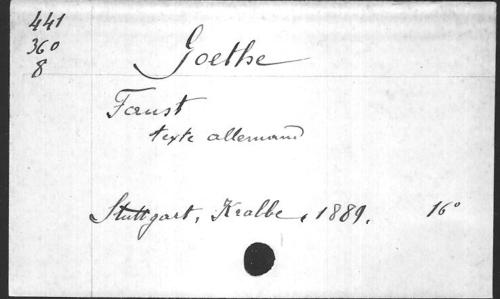 441
360
8
Goethe
Faust
texte allemand
Stuttgart, Krabbe, 1889. 16°